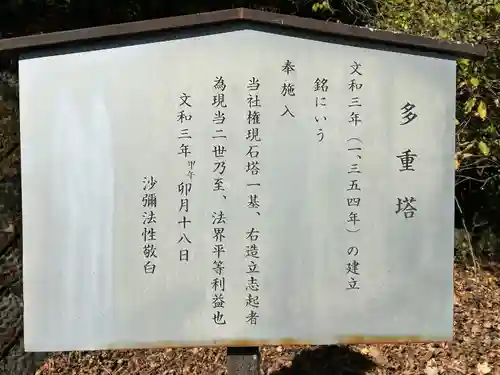 多重塔
文和三年（一、三五四年）の建立
銘にいう
奉施入
当社権現石塔一基、右造立志起者
為現当二世乃至、法界平等利益也
文和三年甲午卯月十八日
沙彌法性敬白